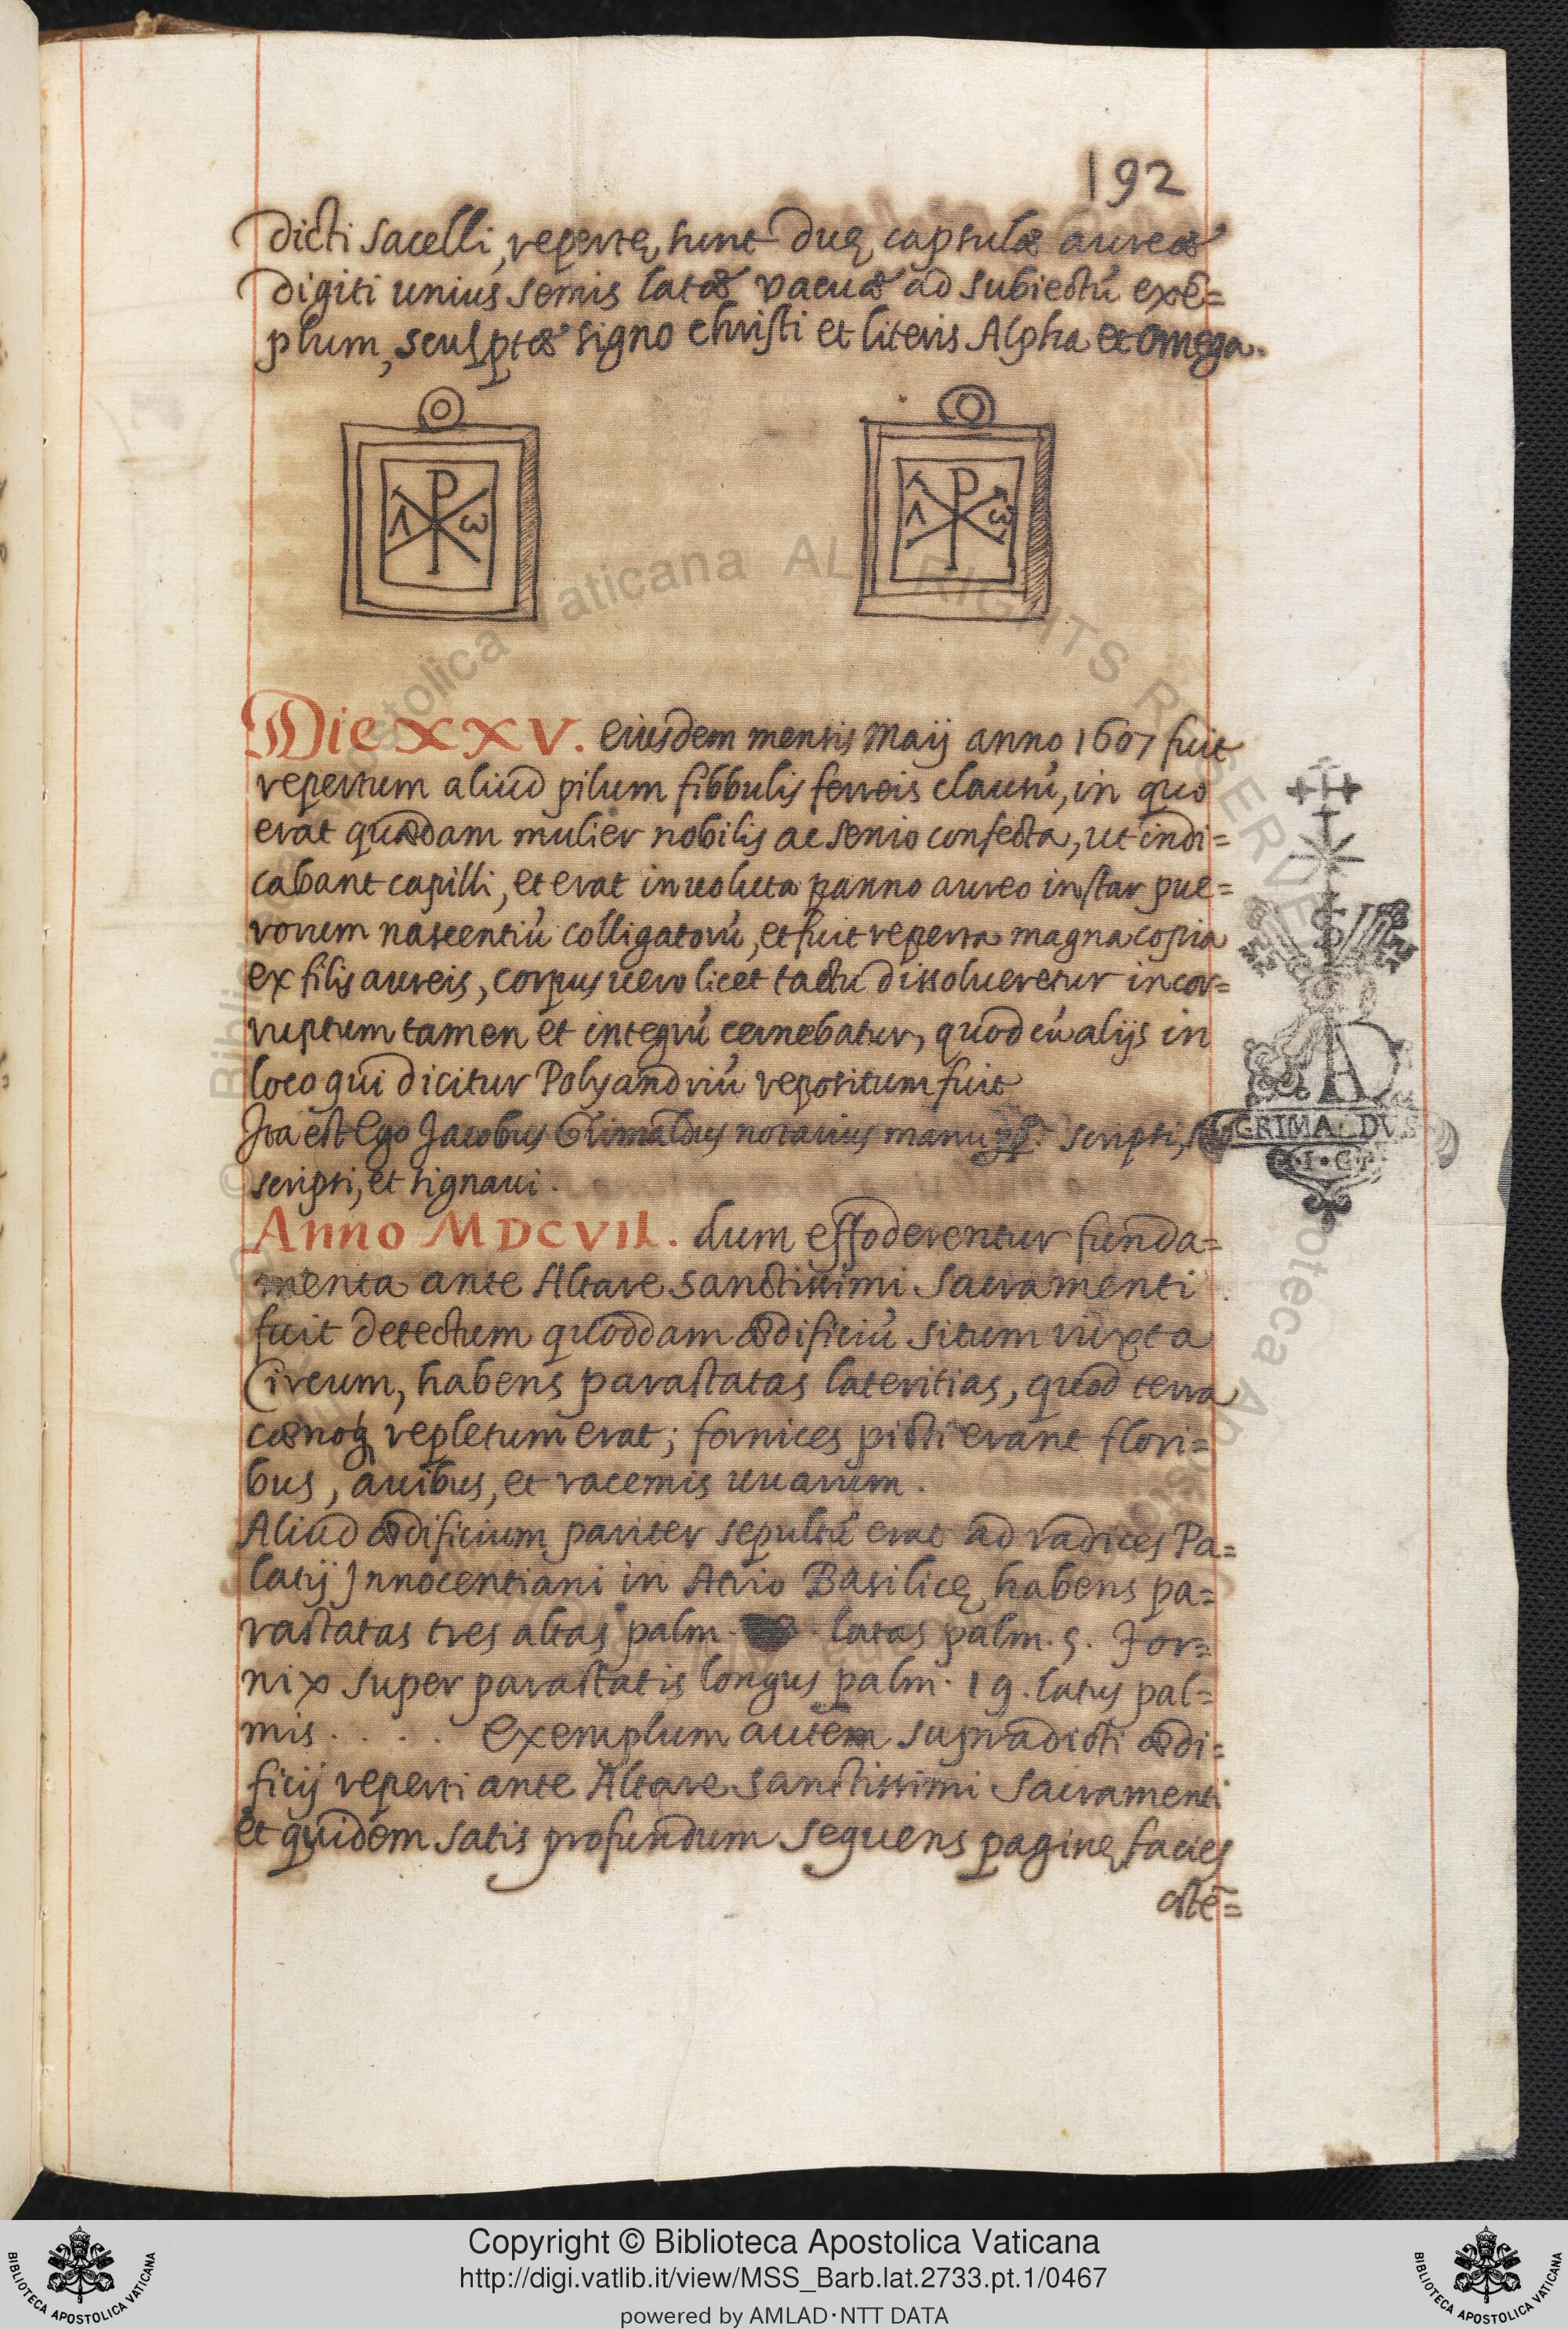 192
dicti sacelli, repertę sunt duę capsulæ aureæ
digiti unius semis latæ vacuæ ad subiectū exē=
plum, sculptæ signo Christi et literis Alpha et omega.
P
Λ ω
P
Λ ω
Die XXV. eiusdem mensis Maij anno 1607 fuit
repertum aliud pilum fibbulis ferreis clausū, in quo
erat quædam mulier nobilis ac senio confecta, ut indi=
cabant capilli, et erat inuoluta panno aureo instar pue=
rorum nascentiū colligatorū, et fuit reperta magna copia
ex filis aureis, corpus uero licet tactu dissolueretur incor=
ruptum tamen et integrū cernebatur, quod cū alijs in
loco qui dicitur Polyandriū repositum fuit
Ita est Ego Jacobus Grimaldus notarius manu scripsi, 
scripsi, et signaui.
GRIMALDVS
Anno MDCVII. dum effoderentur funda=
menta ante Altare sanctissimi Sacramenti
fuit detectum quoddam ædificiū situm iuxta
Circum, habens parastatas lateritias, quod terra
cænoq̨ repletum erat; fornices picti erant flori=
bus, auibus, et racemis uuarum.
Aliud ædificium pariter sepultū erat ad radices Pa=
latij Innocentiani in Atrio Basilicę, habens pa=
rastatas tres altas palm. latas palm. 5. For=
nix super parastatis longus palm. 19. latus pal=
mis. . . . Exemplum autem supradicti ædi=
ficij reperti ante Altare sanctissimi Sacramenti
et quidem satis profundum sequens paginę facies
ostē=
© Biblioteca Apostolica Vaticana ALL RIGHTS RESERVED
Copyright © Biblioteca Apostolica Vaticana
http://digi.vatlib.it/view/MSS_Barb.lat.2733.pt.1/0467
powered by AMLAD·NTT DATA
BIBLIOTECA APOSTOLICA VATICANA
BIBLIOTECA APOSTOLICA VATICANA